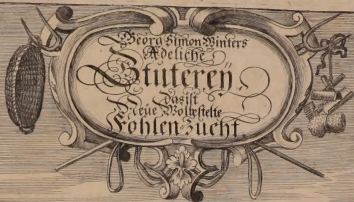 Georg Simon Winters
Adeliche
Stuterey
Das ist
Neue Wolbestelte
Fohlen-Zucht.